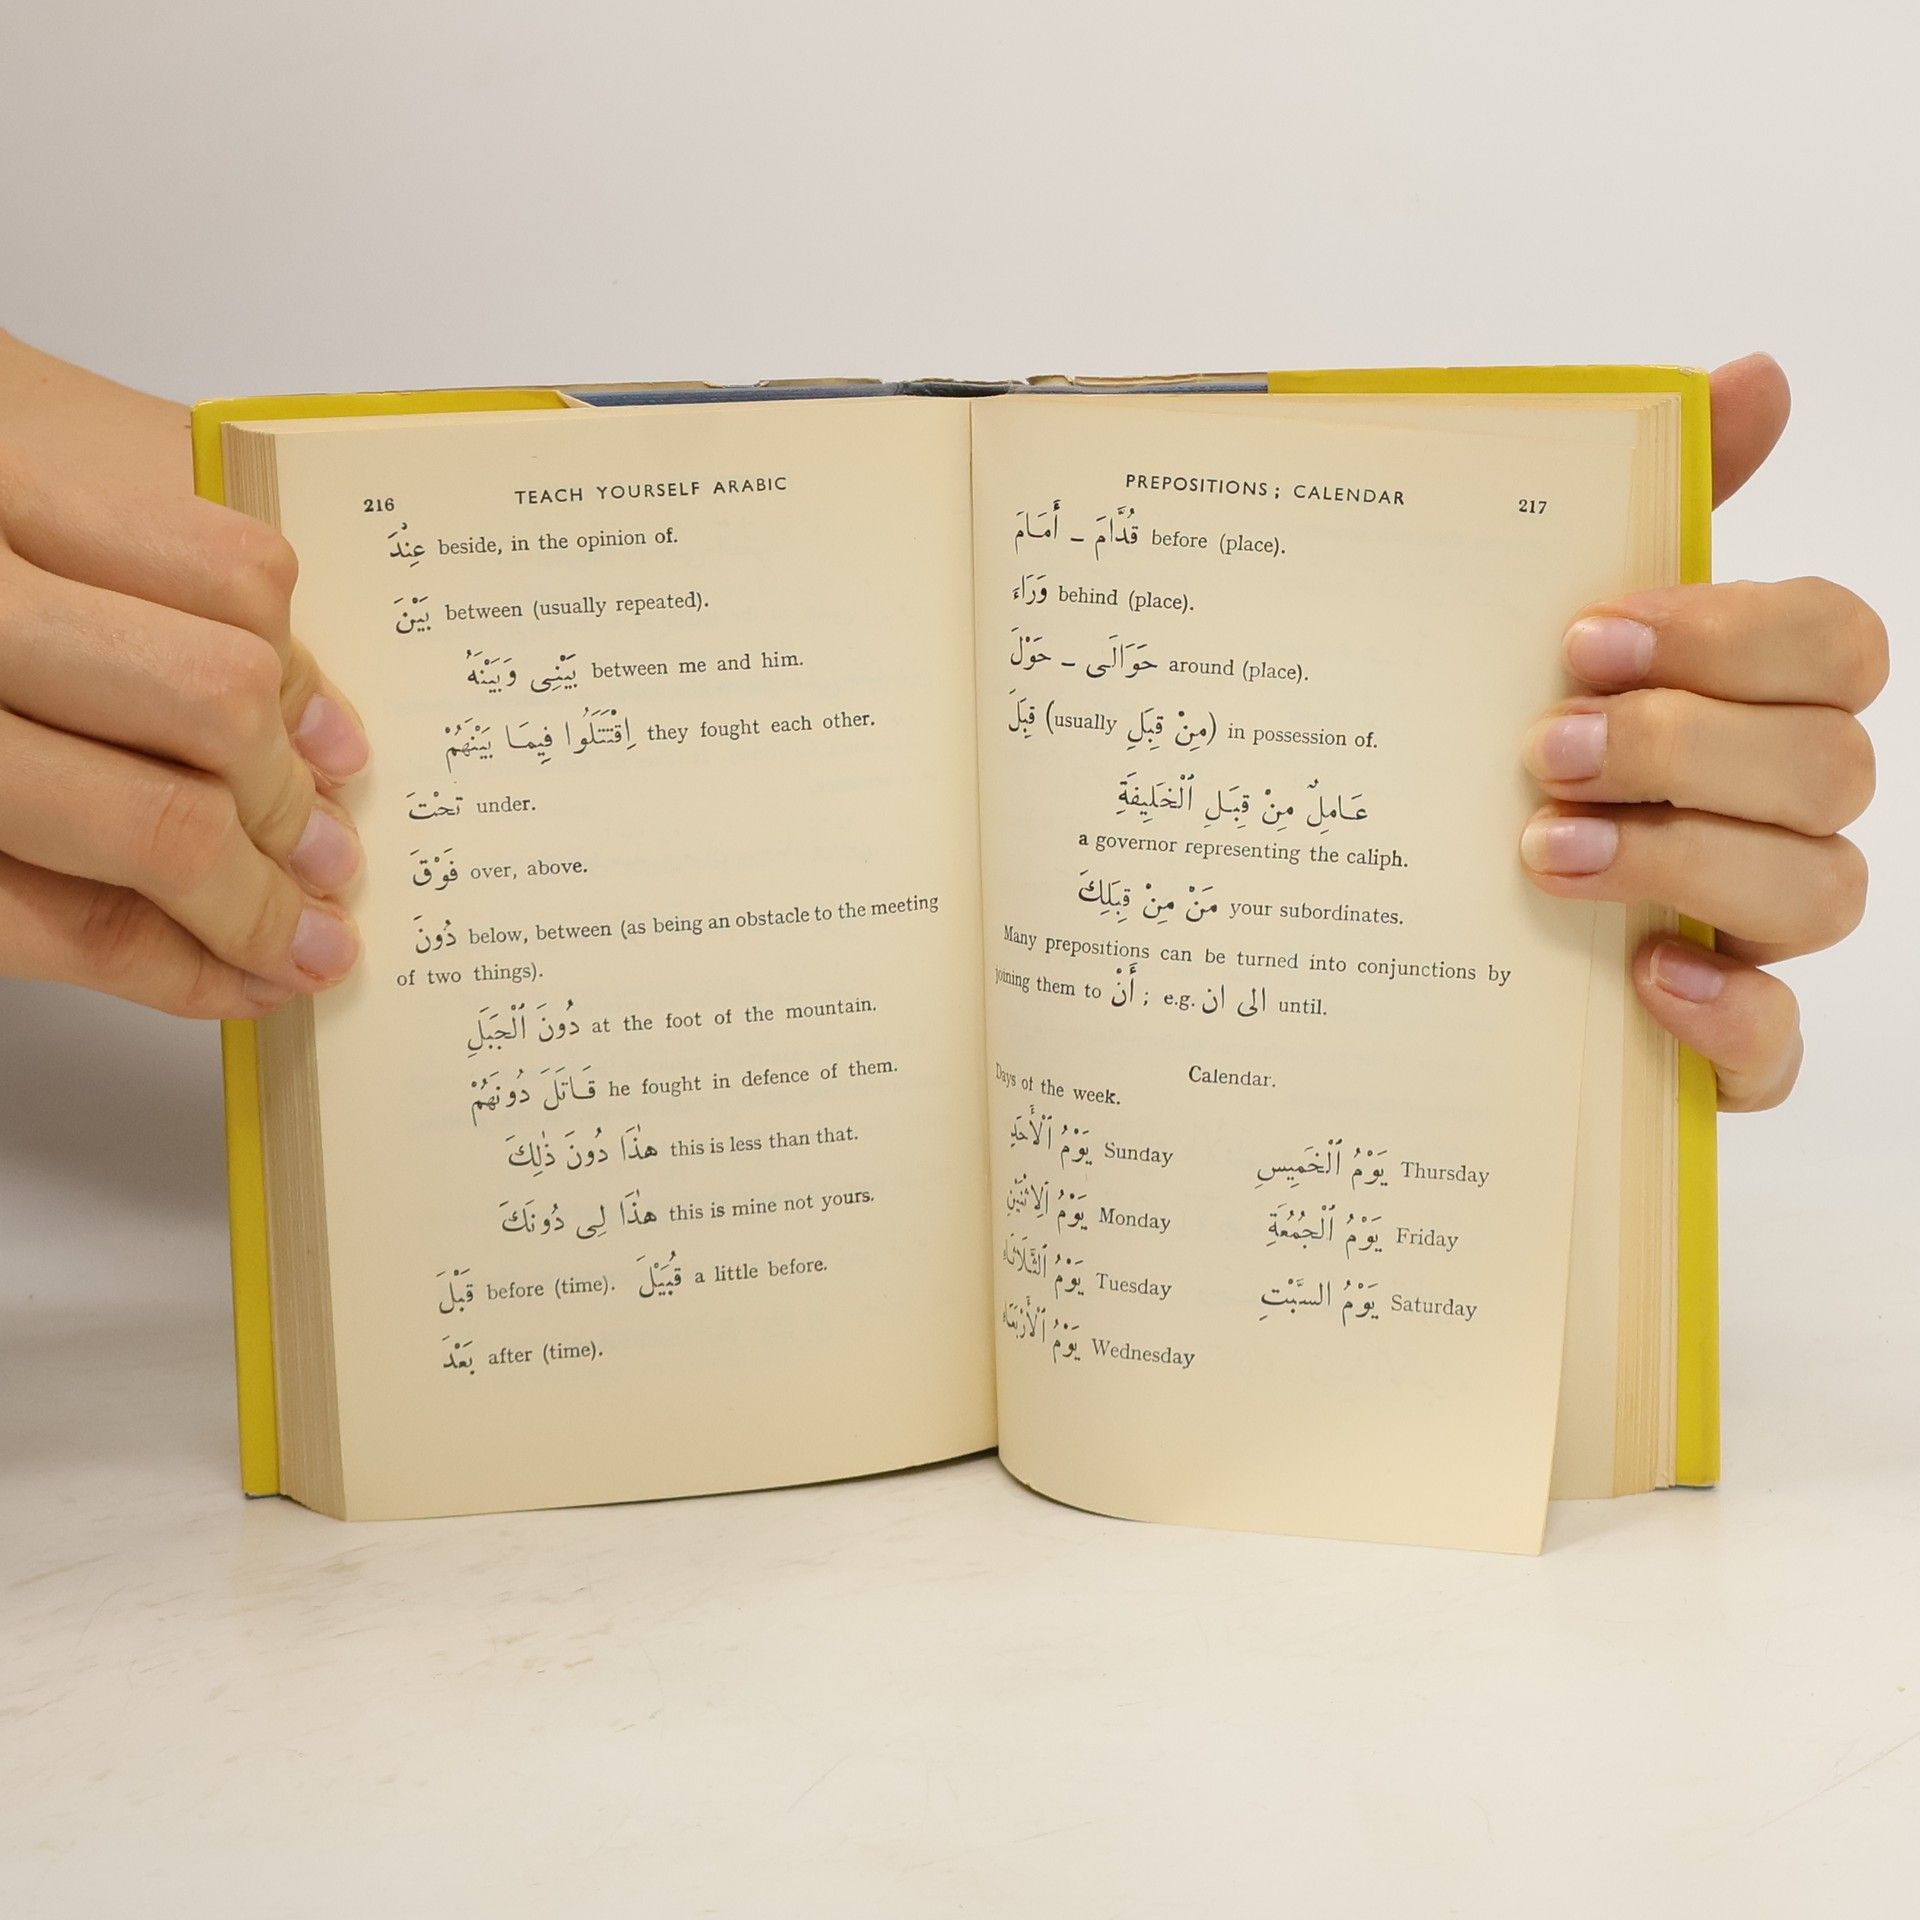 216 TEACH YOURSELF ARABIC
عِنْدَ beside, in the opinion of.
بَيْنَ between (usually repeated).
بَيْنِى وَبَيْنَهُ between me and him.
اِقْتَتَلُوا فِيمَا بَيْنَهُمْ they fought each other.
تَحْتَ under.
فَوْقَ over, above.
دُونَ below, between (as being an obstacle to the meeting
of two things).
دُونَ ٱلْجَبَلِ at the foot of the mountain.
قَاتَلَ دُونَهُمْ he fought in defence of them.
هٰذَا دُونَ ذٰلِكَ this is less than that.
هٰذَا لِى دُونَكَ this is mine not yours.
قَبْلَ before (time). قُبَيْلَ a little before.
بَعْدَ after (time).
PREPOSITIONS; CALENDAR 217
قُدَّامَ – أَمَامَ before (place).
وَرَاءَ behind (place).
حَوَالَى – حَوْلَ around (place).
قِبَلَ (usually مِنْ قِبَلِ) in possession of.
عَامِلٌ مِنْ قِبَلِ ٱلْخَلِيفَةِ
a governor representing the caliph.
مَنْ مِنْ قِبَلِكَ your subordinates.
Many prepositions can be turned into conjunctions by
joining them to أَنْ; e.g. الى ان until.
Calendar.
Days of the week.
يَوْمُ ٱلْأَحَدِ Sunday
يَوْمُ ٱلِاثْنَيْنِ Monday
يَوْمُ ٱلثَّلَاثَاءِ Tuesday
يَوْمُ ٱلْأَرْبَعَاءِ Wednesday
يَوْمُ ٱلْخَمِيسِ Thursday
يَوْمُ ٱلْجُمُعَةِ Friday
يَوْمُ السَّبْتِ Saturday